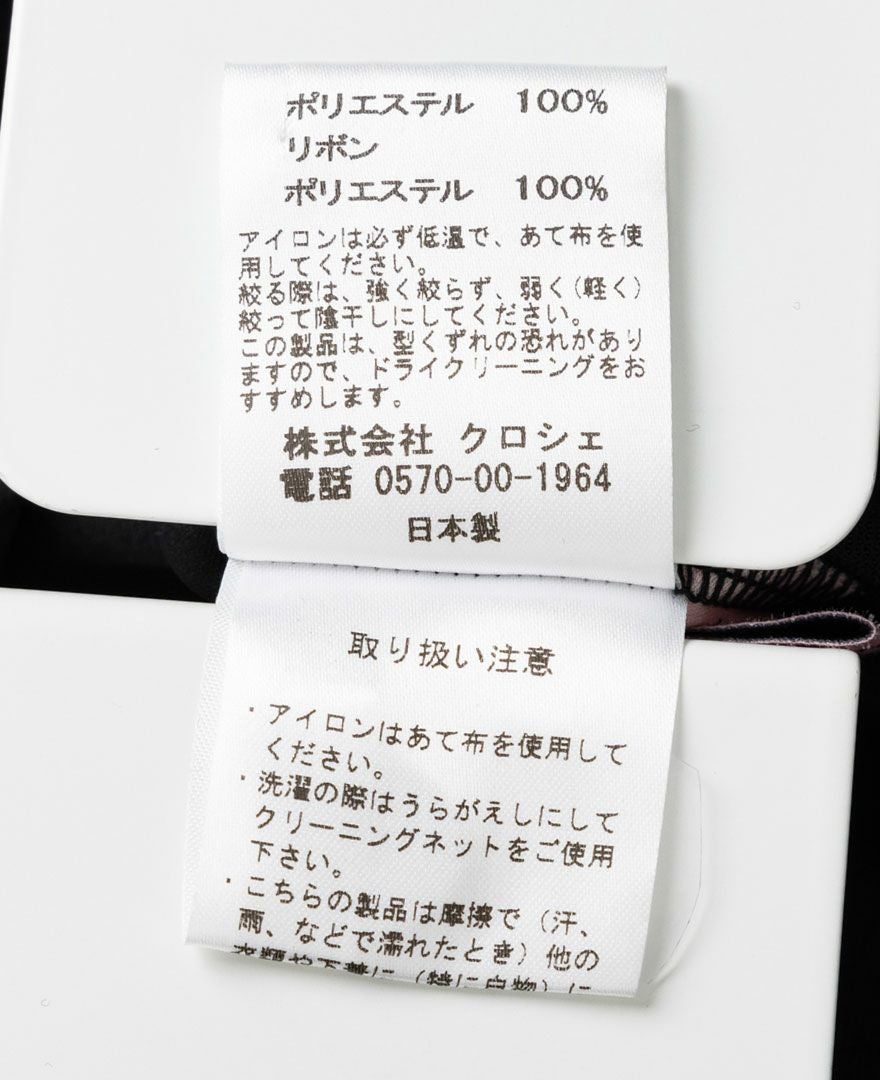 ポリエステル　100%
リボン
ポリエステル　100%
アイロンは必ず低温で、あて布を使
用してください。
絞る際は、強く絞らず、弱く(軽く)
絞って陰干しにしてください。
この製品は、型くずれの恐れがあり
ますので、ドライクリーニングをお
すすめします。
株式会社 クロシェ
電話 0570-00-1964
日本製
取り扱い注意
・アイロンはあて布を使用して
ください。
・洗濯の際はうらがえしにして
クリーニングネットをご使用
下さい。
・こちらの製品は摩擦で（汗、
雨、などで濡れたとき）他の
衣類や下着に（特に白物）に